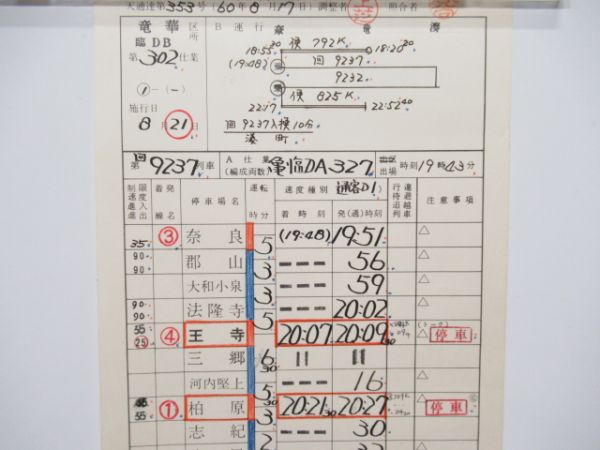 天通達第353号(60年8月17日)調整者 照合者
竜華 区所 B運行 奈 竜 湊
臨DB
第302仕業
施行日
8月21日
18:55 30 便 792K 18:28 20
(19:48) 回 9237
9232
便 825K
22:17 22:52 40
回9237入換10分
湊町
第 回 9237列車 A仕業 (編成両数) 亀臨DA-327 出区 出場 時刻19時43分
制限速度進入進出 着発線名 停車場名 運転時分 速度種別 通客D1 行違待避追越列車 注意事項
着時刻 発(通)時刻
35 ③ 奈良 5 (19:48) 19:51 △
90 90 郡山 3 56 △
大和小泉 3 59 △
90 90 法隆寺 5 20:02 △
55 25 ④ 王寺 20:07 20:09 30 △ 停車
三郷 6 30 〃 〃 △
河内堅上 5 30 16 △
55 ① 柏原 3 20:21 30 20:27 △ 停車
志紀 2 30 △